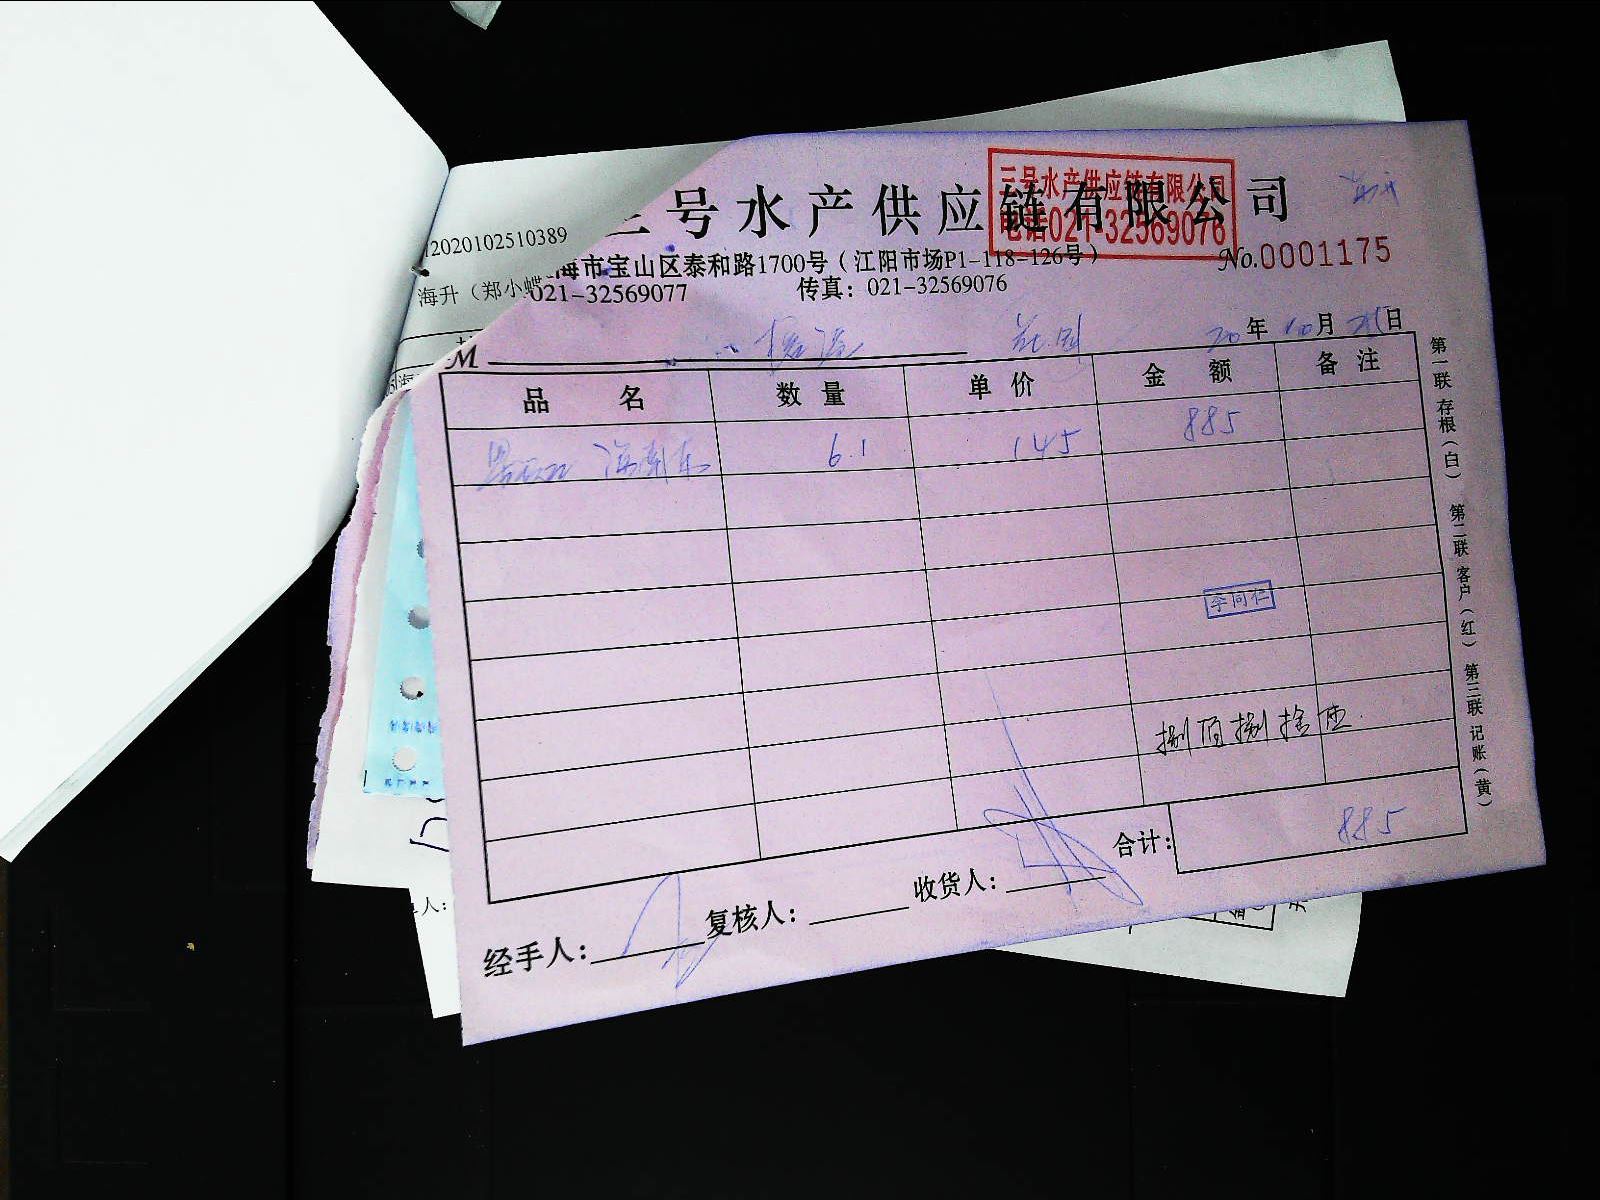 三号水产供应链有限公司
三号水产供应链有限公司
电话021-32569076
2020102510389
海市宝山区泰和路1700号（江阳市场P1-118-126号）
No.0001175
海升（郑小蝶
021-32569077 传真：021-32569076
M
20年10月 日
品名 数量 单价 金额 备注
6.1 145 885
李同仁
捌佰捌拾伍
合计： 885
经手人： 复核人： 收货人：
第一联 存根（白） 第二联 客户（红） 第三联 记账（黄）